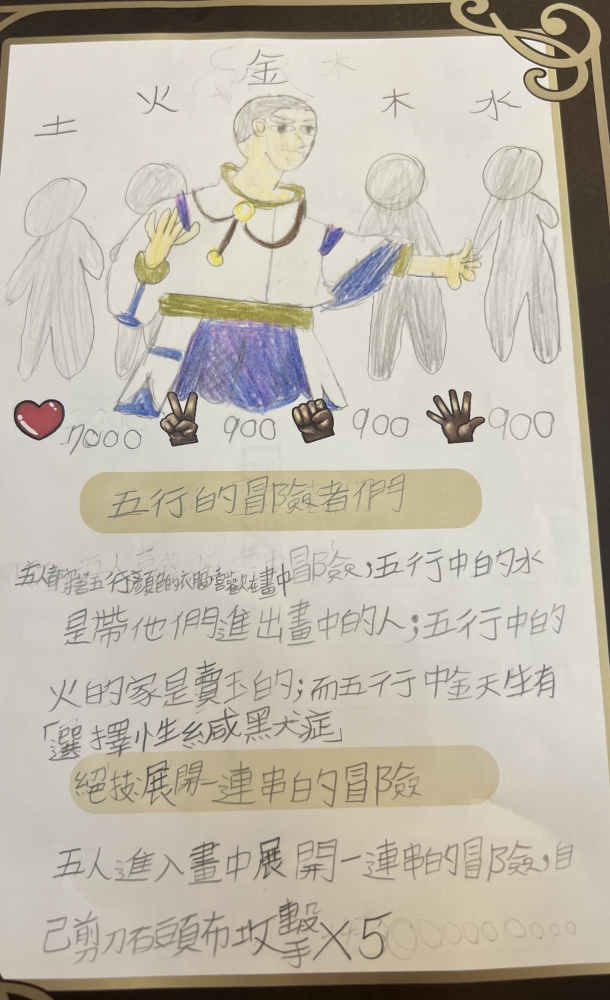 土 火 金 木 水
7000 900 900 900
五行的冒險者們
五人都穿著五行顏色的衣服喜歡在畫中冒險,五行中的水
是帶他們進出畫中的人;五行中的
火的家是賣玉的;而五行中金天生有
「選擇性緘默症」
絕技:展開一連串的冒險
五人進入畫中展開一連串的冒險,自
己剪刀石頭布攻擊×5